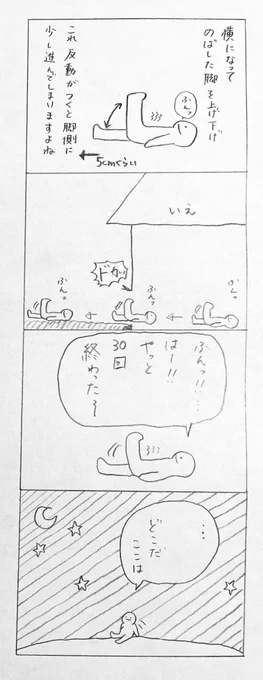 横になって
のばした脚を上げ下げ
ふんっ
これ反動がつくと脚側に
少し進んでしまいますよね
5cmくらい
いえ
ふんっ
ふんっ
ドカッ
ふんっ
ふんっ!!……
はー!!
やっと
30回
終わった〜
…
どこだ
ここは